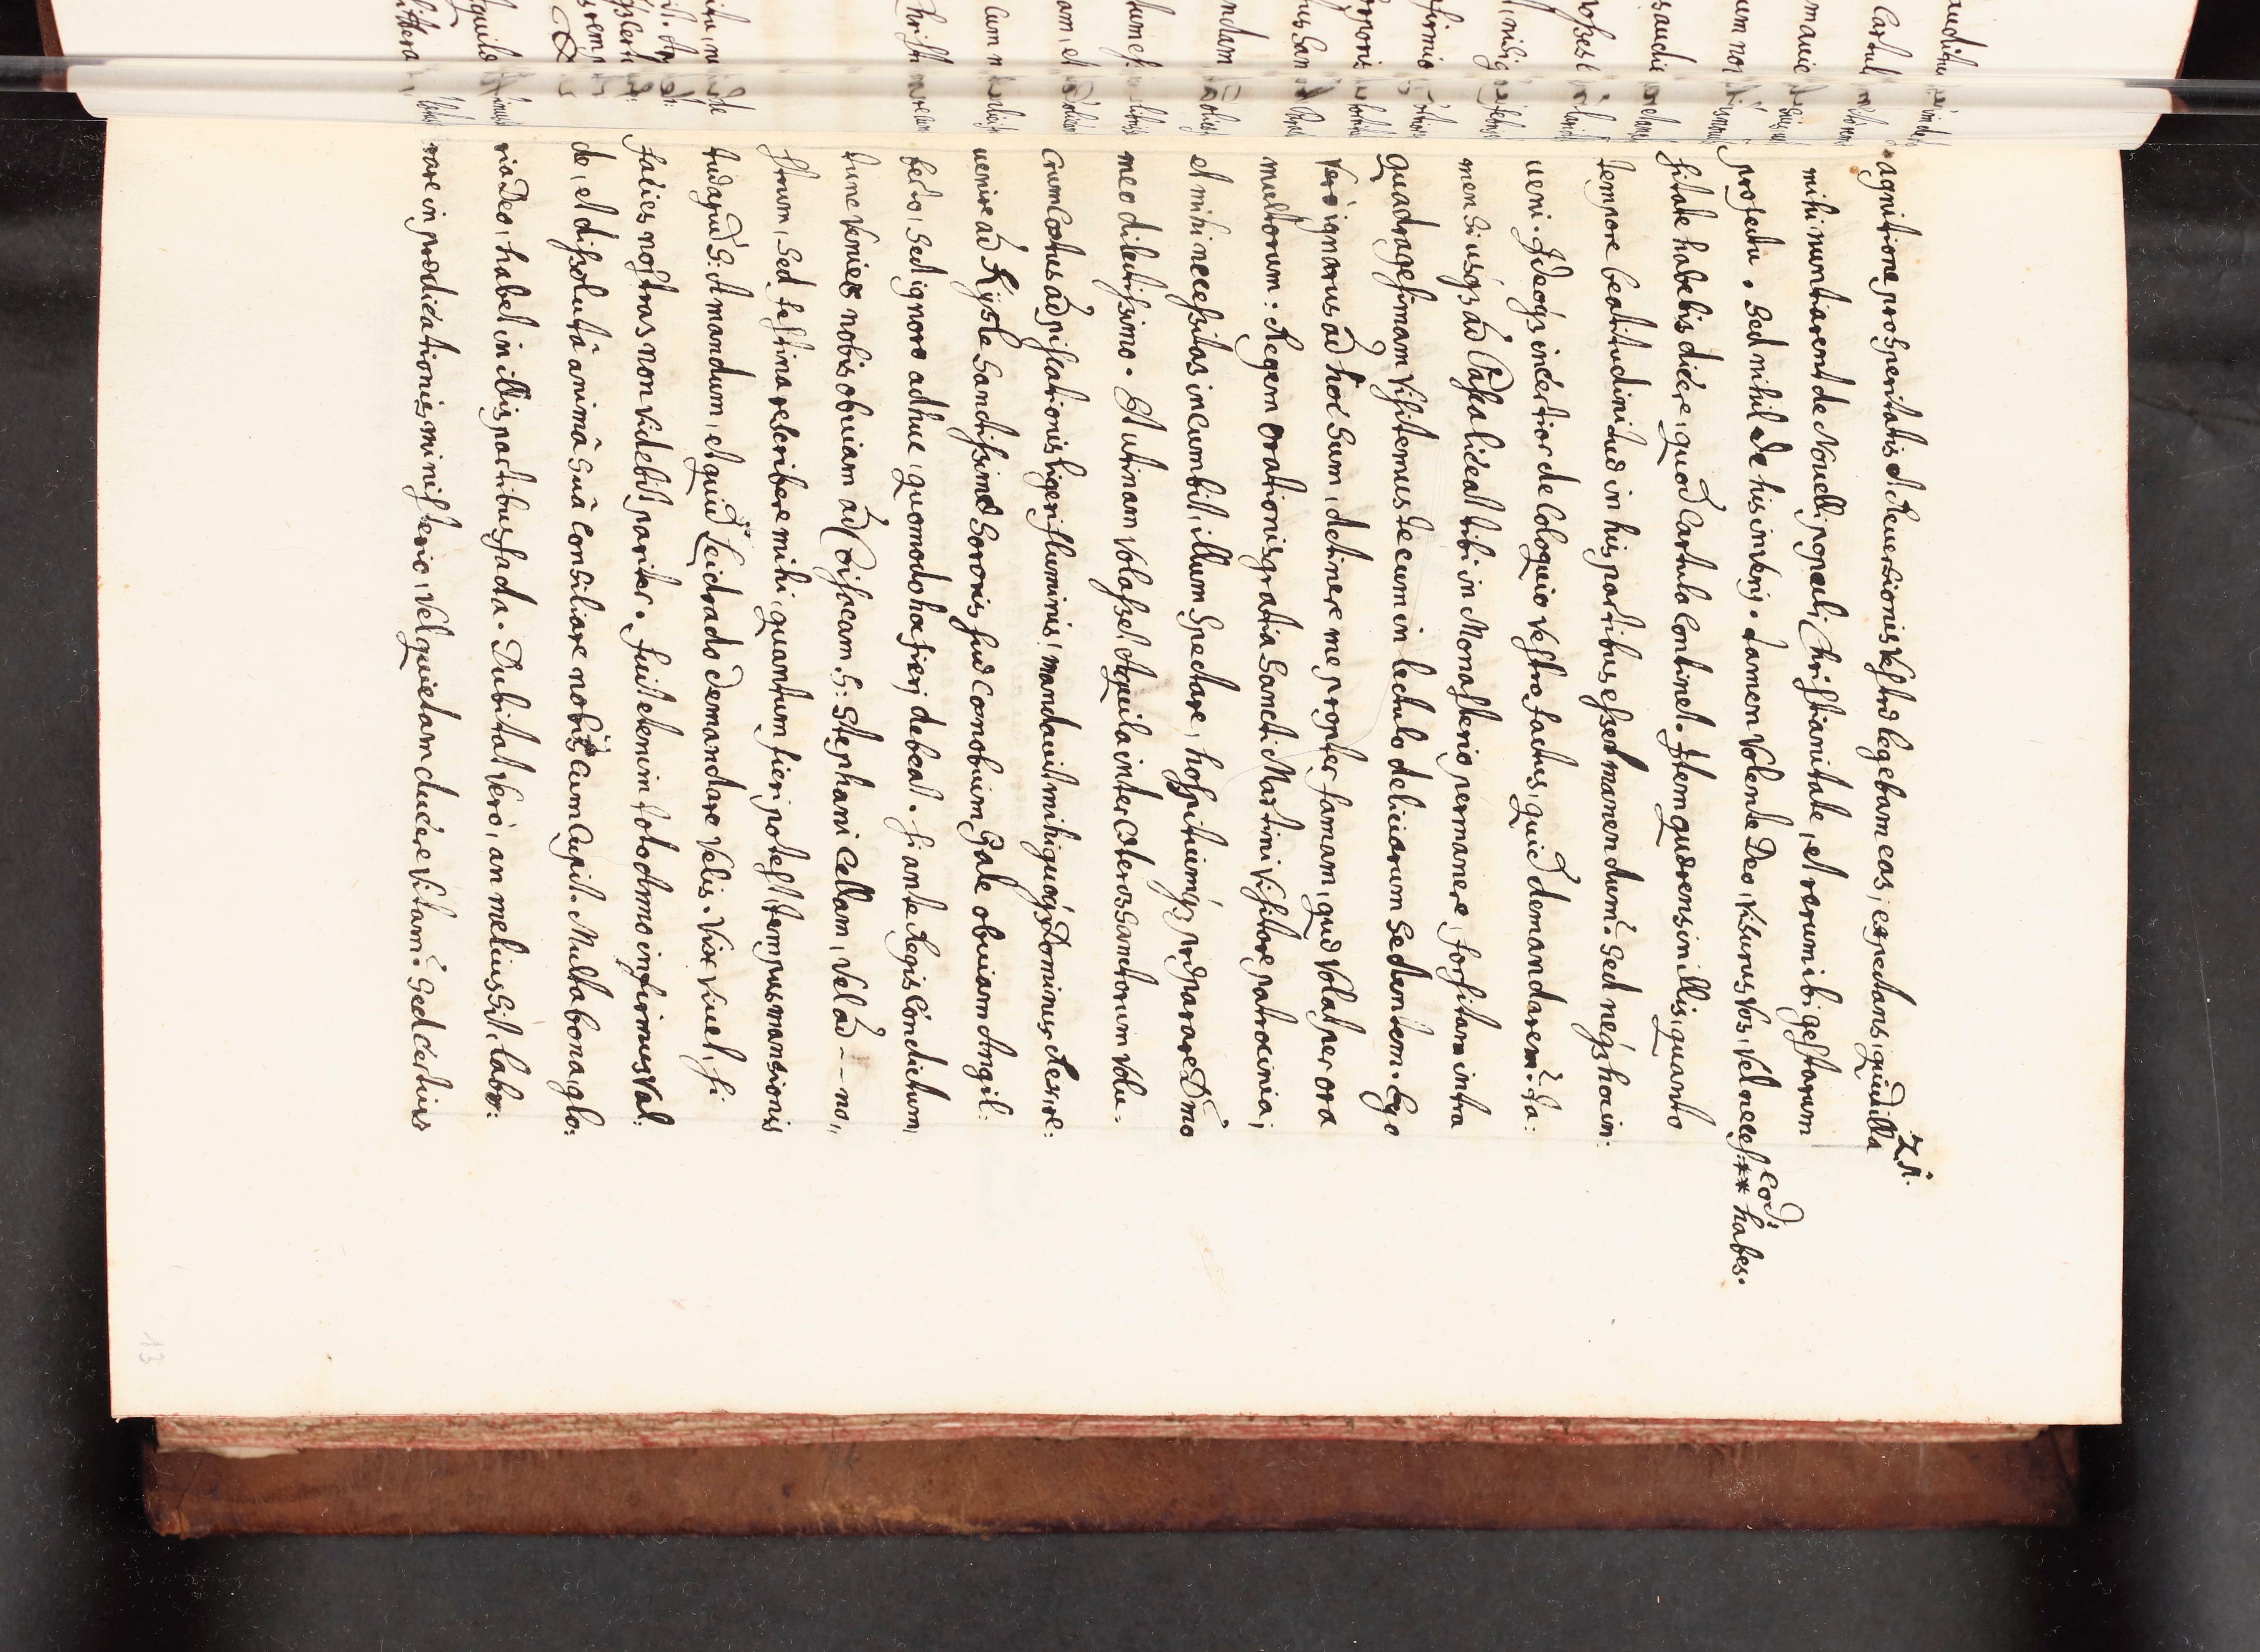 21.
agnitione prosperitatis et Reuersionis vestræ legebam eas, expectans, quid illa
mihi nuntiarent de Nouelli populi Christianitate, et rerum ibi gestarum
profectu. Sed nihil de his inveni. tamen volente Deo, visurus vos, vel neces** habes. Cod:
sitate habetis dicere, quod Cartula continet. Item quærens in illis, quanto
tempore beatitudini tuæ in his partibus esset manendum? Sed neq3 hoc in:
ueni. Ideoq3 incertior de Coloquio vestro factus, quid demandarem? ta:
men si usq3 ad Pascha liceat tibi in Monasterio permanere, forsitam intra
quadragesimam visitemus te cum in lectulo deliciarum sedentem. Ego
Vero ignarus ad hoc sum, detinere me propter famam, quæ volat per ora
multorum: Regem orationis gratia Sancti Martini visitare patrocinia,
et mihi necessitas incumbit, illum spectare, hospitiumq3 præparare Dno
meo dilectissimo. Et utinam volasset Aquila inter Cæteros Sanctorum volu-
crum Cœtus ad piscationis Ligeri fluminis! mandauit mihi quoq3 Dominus Rex, re:
uenire ad Rijsle Sanctissimæ Sororis suæ Cœnobium Gale obuiam Angil:
berto, sed ignoro adhuc, quomodo hæc fieri debeat. si ante Regis Condictum,
tunc venies nobis obuiam ad Cuiscam. S: Stephani Cellam, vel ad - - no,,
strum, Sed festina rescribere mihi, quantum fieri potest, tempus mansionis
tuæ apud S. Amandum, et quid Leidrado demandare velis. Vix viuet, si
facies nostras non videbit pariter. fuit etenim toto Anno infirmus val:
de, et dissolutâ animâ suâ Consiliare nobiscum Cupit. Multa bona, glo:
ria Deo, habet in illis partibus facta. Dubitat vero, an melius sit, labo:
rare in prædicationis ministerio, vel quietam ducere vitam? Sed certius